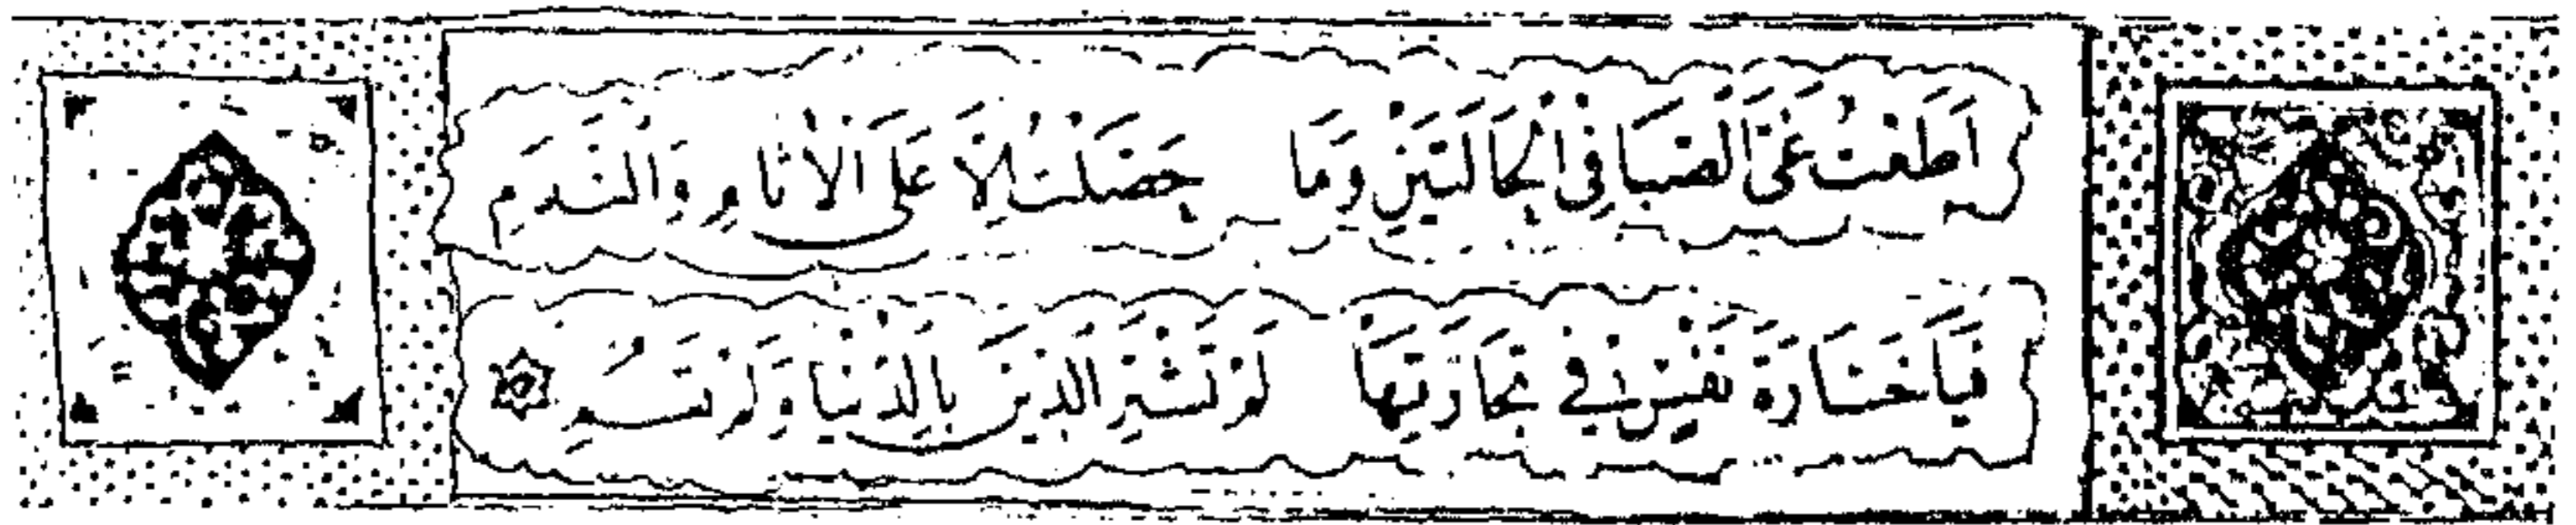 اَطَعْتُ غَيَّ الصِّبَا فِي الْحَالَتَيْنِ وَمَا حَصَلْتُ اِلَّا عَلَى الْاٰثَامِ وَالنَّدَمِ
فَيَا خَسَارَةَ نَفْسٍ فِي تِجَارَتِهَا لَمْ تَشْتَرِ الدِّينَ بِالدُّنْيَا وَلَمْ تَسُمِ